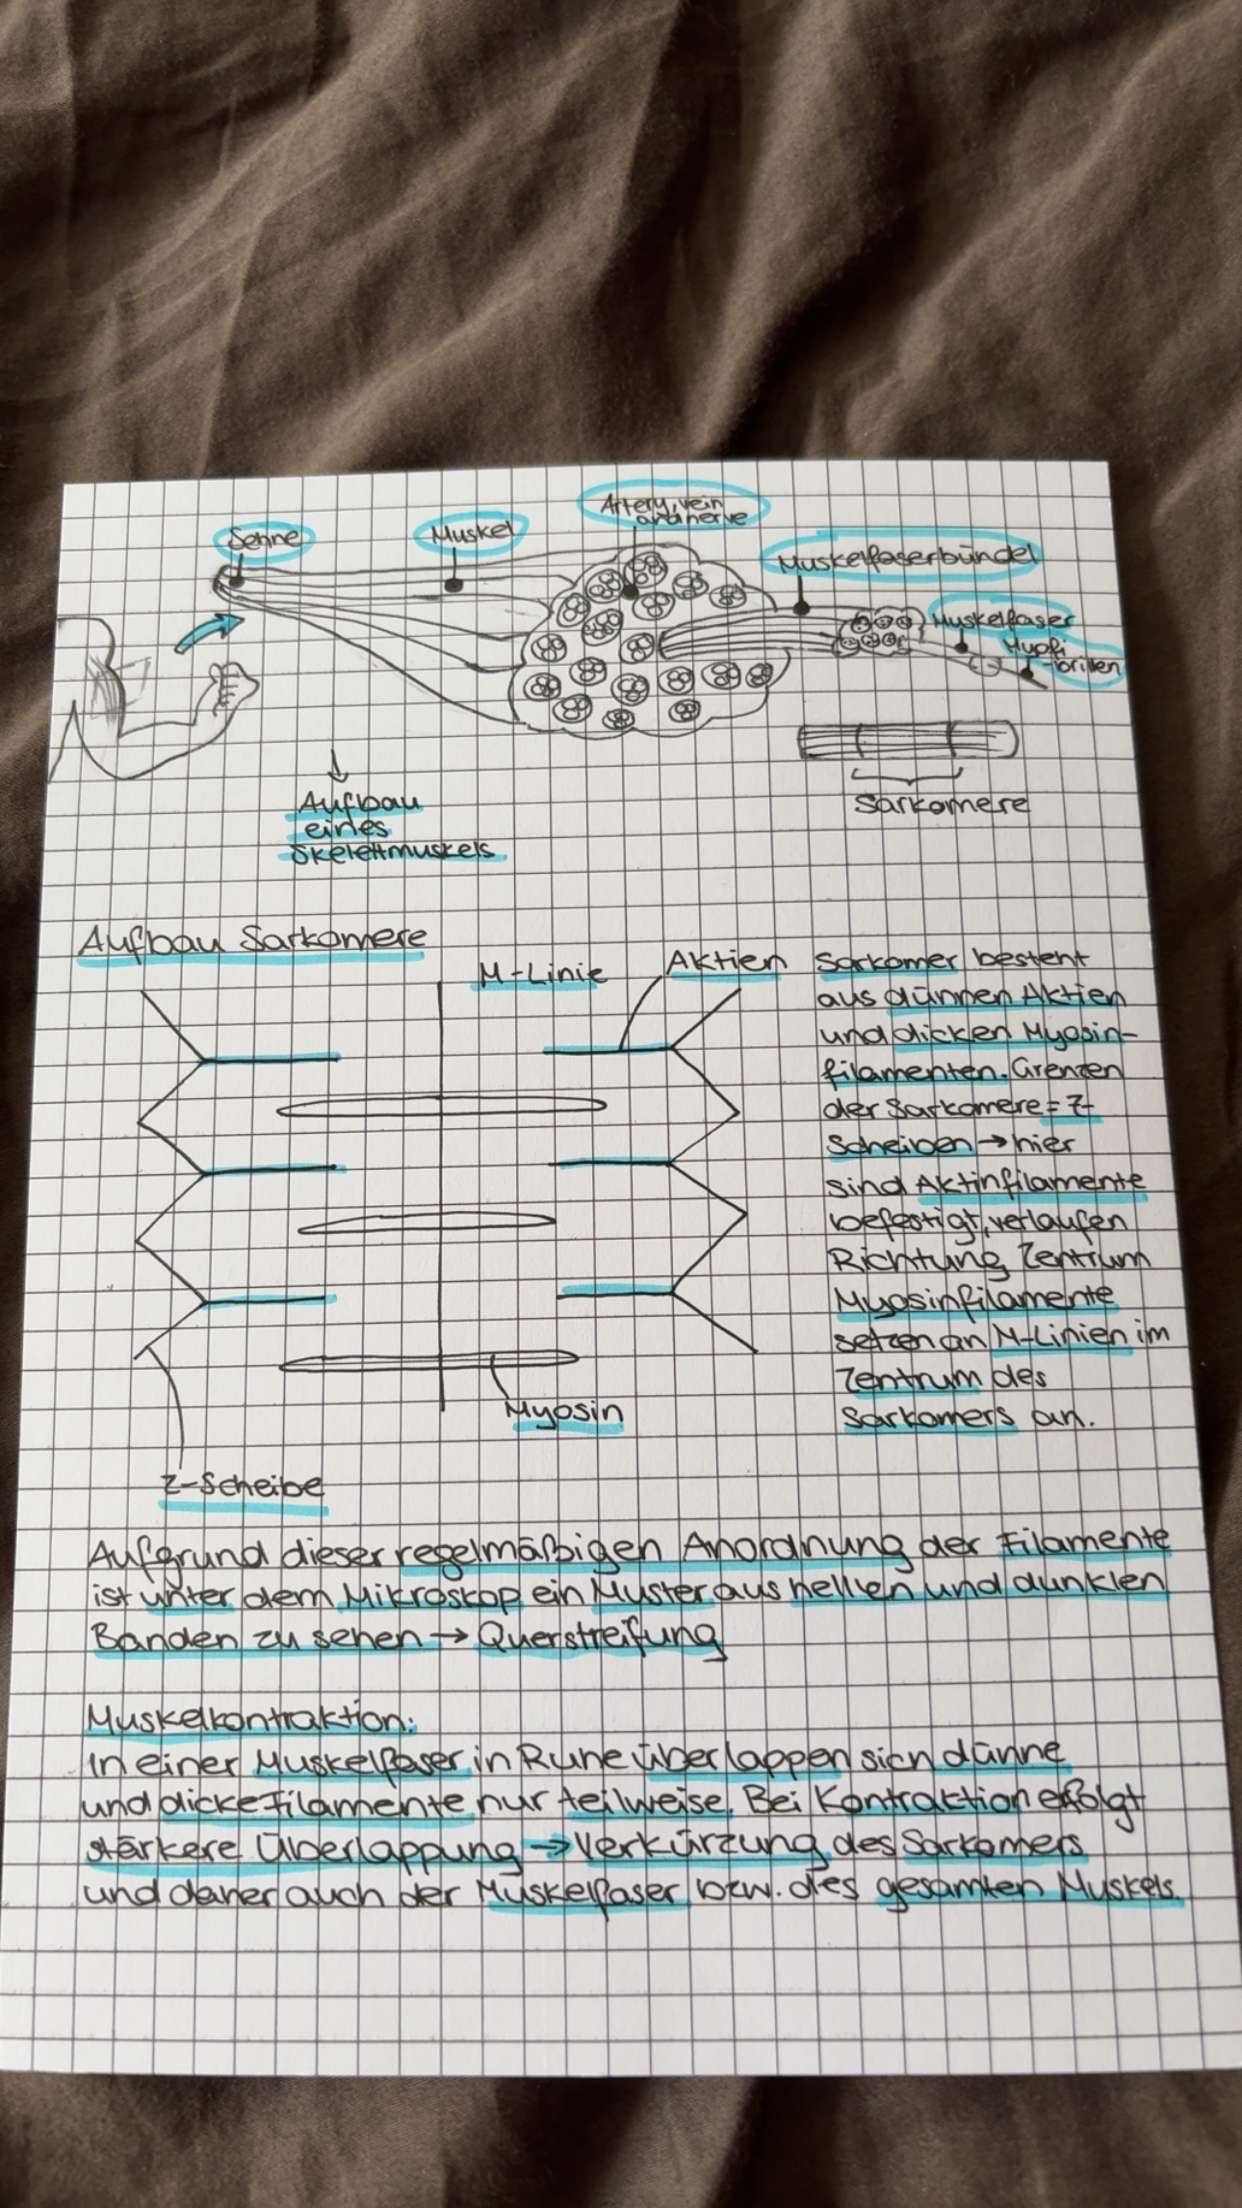 Sehne
Muskel
Artery, vein
and nerve
Muskelfaserbündel
Muskelfaser
Myofi
-brillen
Sarkomere
Aufbau
eines
Skelettmuskels
Aufbau Sarkomere
M-Linie
Aktien
Myosin
Z-Scheibe
Sarkomer besteht
aus dünnen Aktien
und dicken Myosin-
filamenten. Grenzen
der Sarkomere = Z-
Scheiben → hier
sind Aktinfilamente
befestigt, verlaufen
Richtung Zentrum
Myosinfilamente
setzen an M-Linien im
Zentrum des
Sarkomers an.
Aufgrund dieser regelmäßigen Anordnung der Filamente
ist unter dem Mikroskop ein Muster aus hellen und dunklen
Banden zu sehen → Querstreifung
Muskelkontraktion:
In einer Muskelfaser in Ruhe überlappen sich dünne
und dicke Filamente nur teilweise. Bei Kontraktion erfolgt
stärkere Überlappung → Verkürzung des Sarkomers
und daher auch der Muskelfaser bzw. des gesamten Muskels.